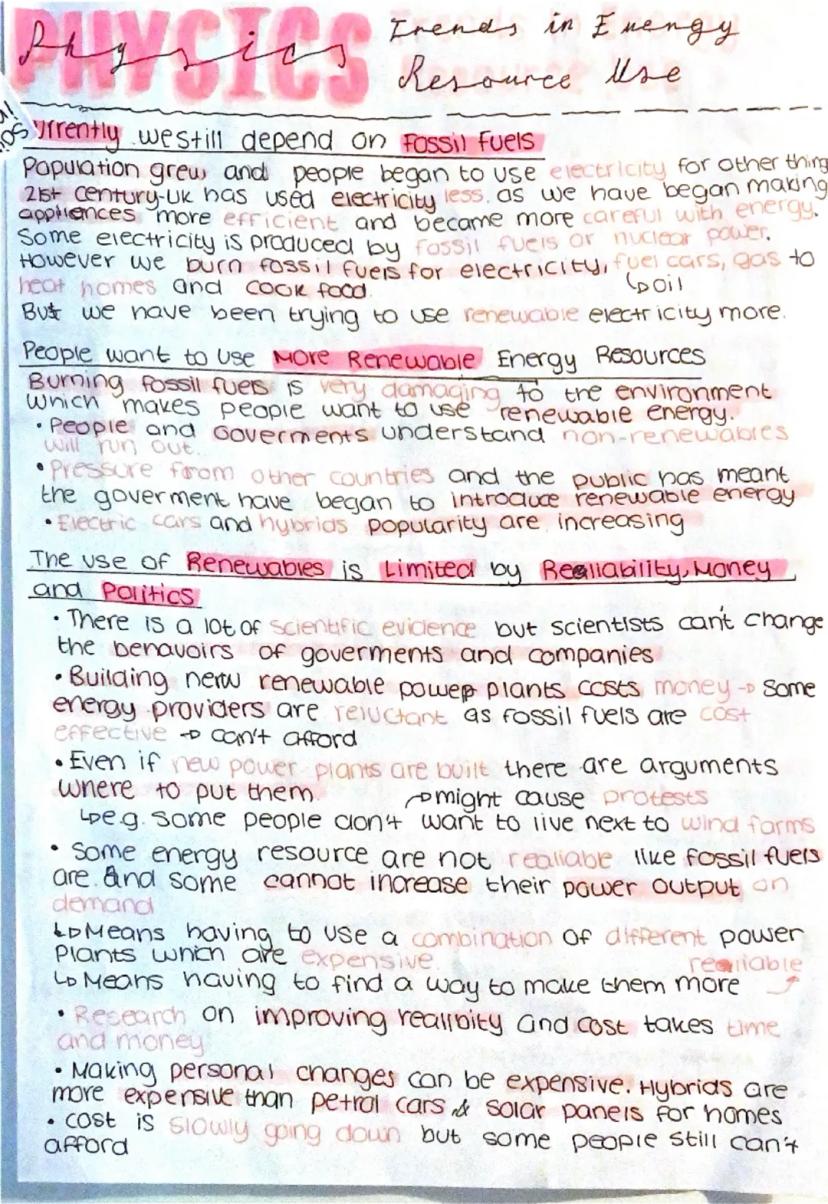 PHYSICS
Physics
Trends in Energy
Resource Use
urrently we still depend on Fossil Fuels
Population grew and people began to use electricity for other thing
21st century-UK has used electricity less as we have began making
appliences more efficient and became more careful with energy.
Some electricity is produced by fossil fuels or nuclear power.
However we burn fossil fuels for electricity, fuel cars, gas to
heat homes and cook food. ↳oil
But we have been trying to use renewable electricity more.
People want to use More Renewable Energy Resources
Burning fossil fuels is very damaging to the environment
which makes people want to use renewable energy.
• People and Goverments understand non-renewables
will run out.
• Pressure from other countries and the public has meant
the goverment have began to introduce renewable energy
• Electric cars and hybrids popularity are increasing
The use of Renewables is Limited by Realiability, Money
and Politics
• There is a lot of scientific evidence but scientists can't change
the behavoirs of goverments and companies
• Building new renewable power plants costs money → Some
energy providers are reluctant as fossil fuels are cost
effective → can't afford
• Even if new power plants are built there are arguments
where to put them. ↱might cause protests
↳e.g. some people don't want to live next to wind farms
• Some energy resource are not realiable like fossil fuels
are. And some cannot increase their power output on
demand
↳Means having to use a combination of different power
Plants which are expensive.
↳Means having to find a way to make them more realiable
• Research on improving realibity and cost takes time
and money
• Making personal changes can be expensive. Hybrids are
more expensive than petrol cars & solar panels for homes
• cost is slowly going down but some people still can't
afford